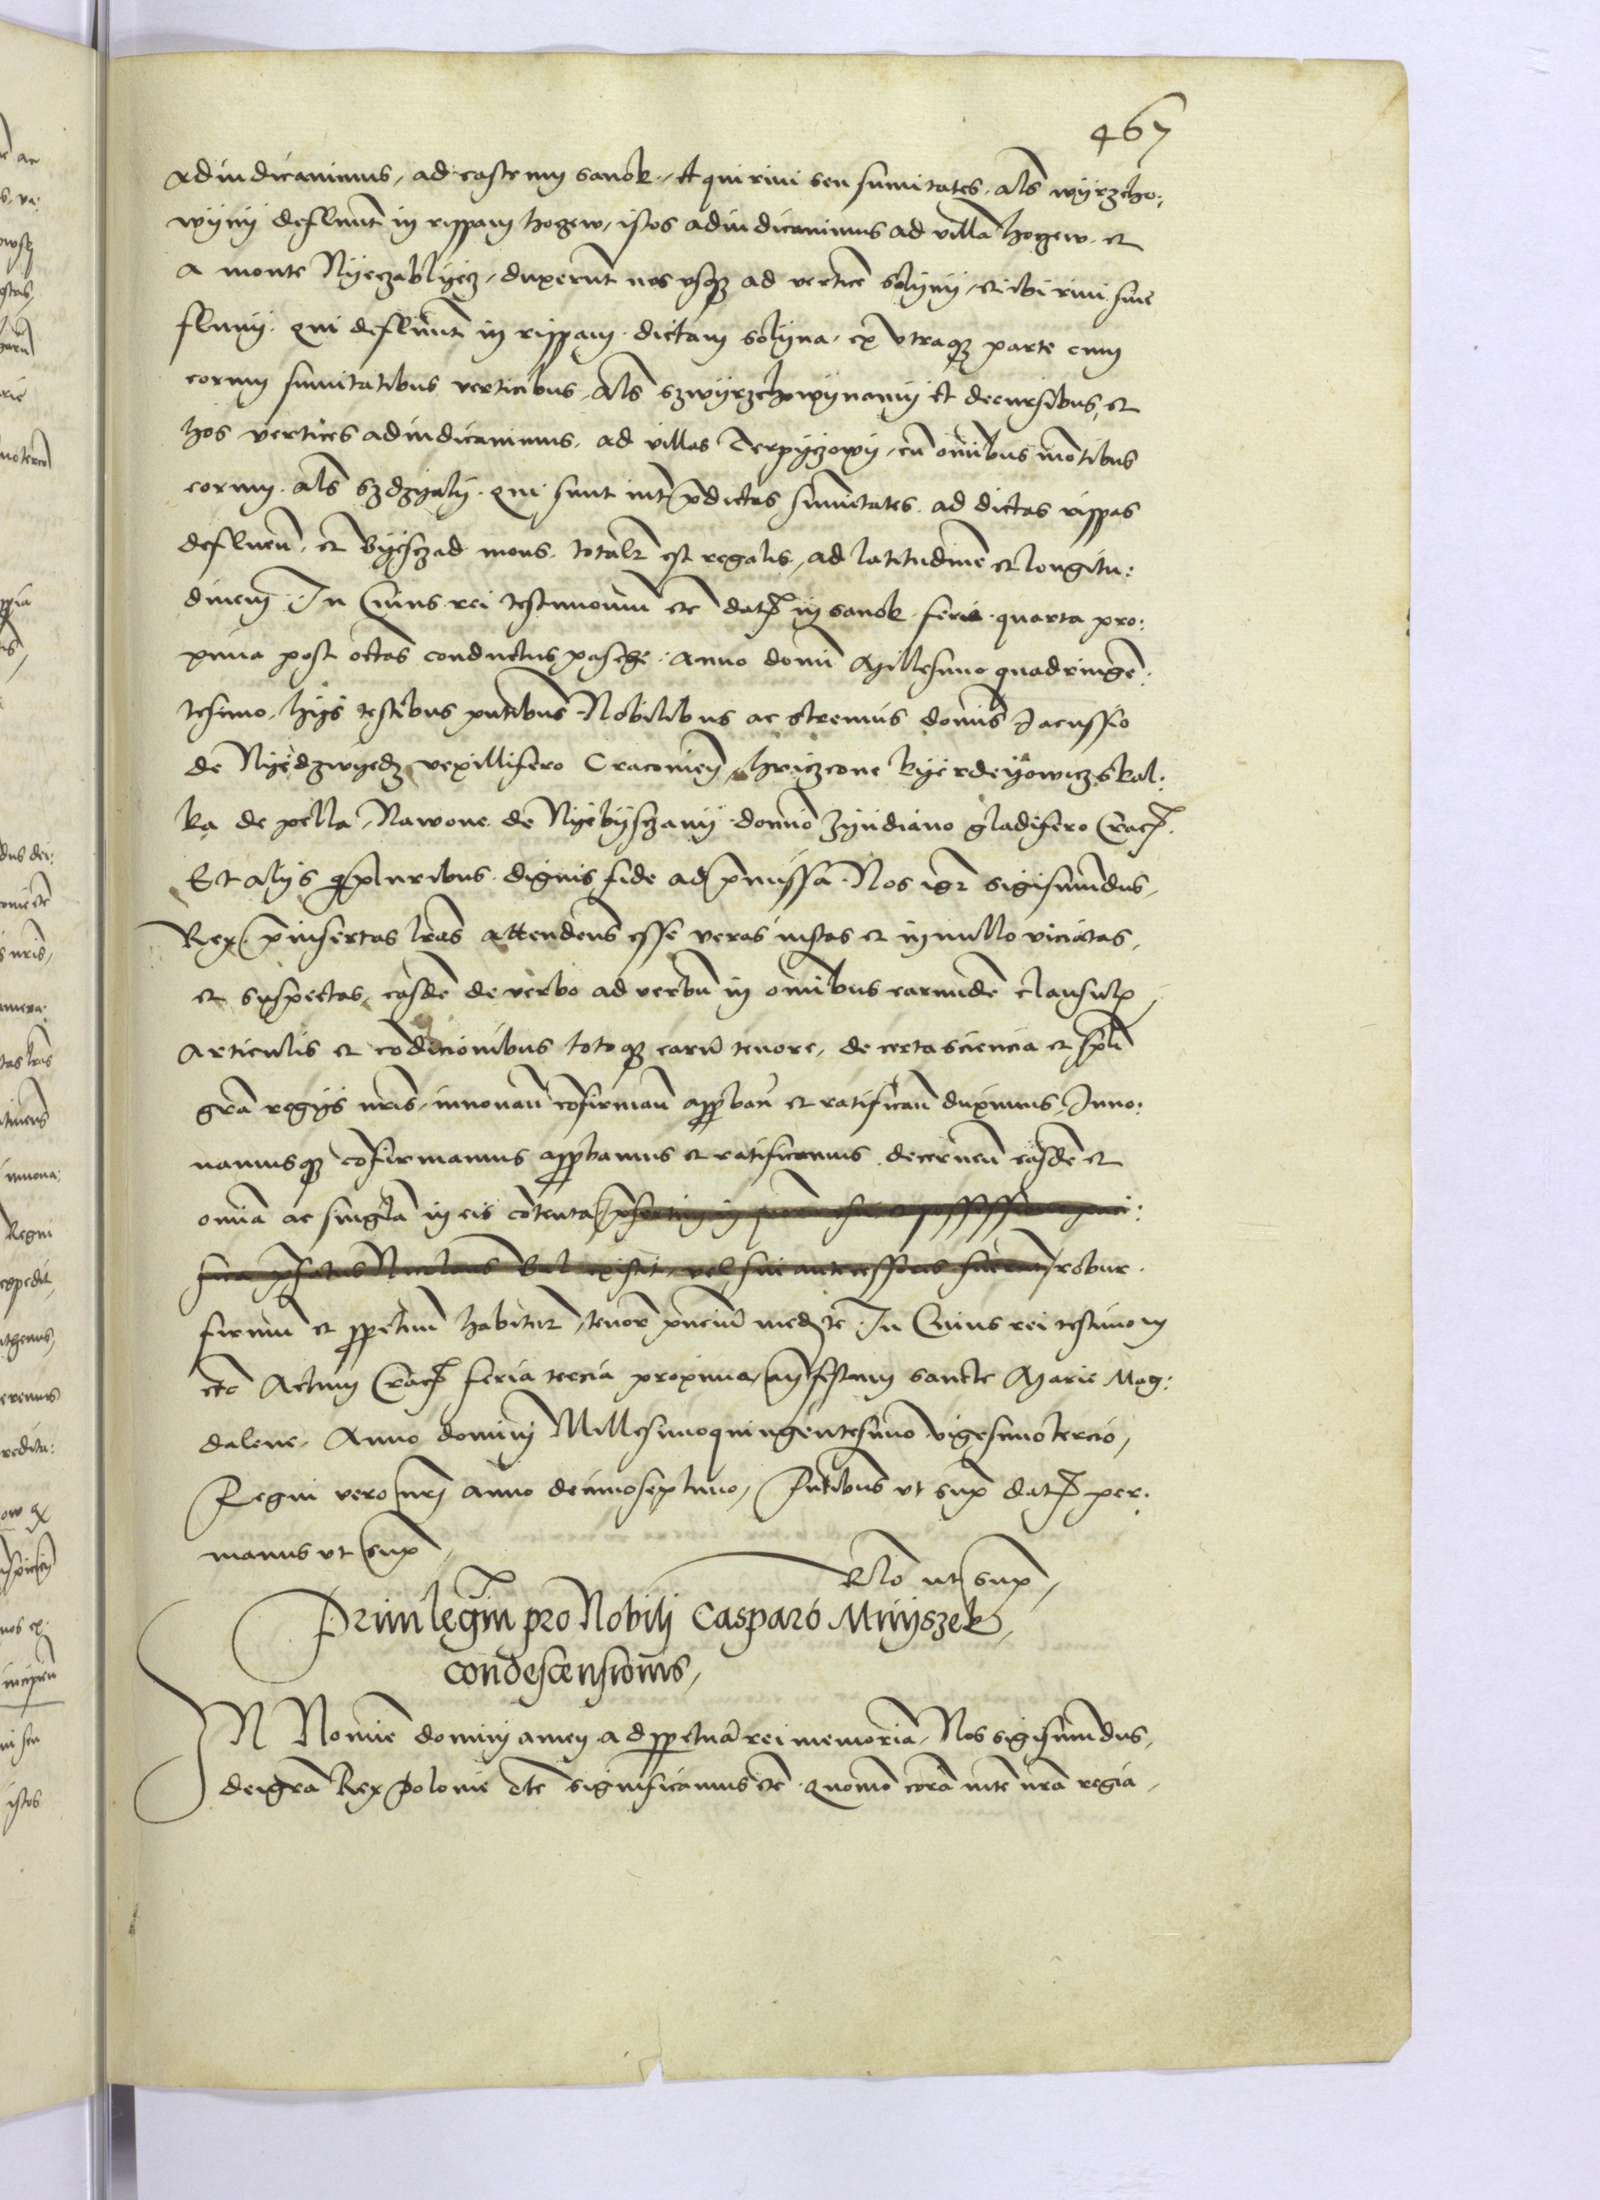 467
adiudicavimus, ad castrum Sanok, et qui rivi seu sumitates, als wyrzcho:
wyny defluunt in rippam Hogew, istos adiudicavimus ad villā Hogew. et
a monte Nyeczablyecz, duxerunt nos usq3 ad verticē Solyny, et ibi rivi sive
fluvij. qui defluunt in rippam. dictam Solyna, ex utraq3 parte cum
eorum sumitatibus verticibus, als szwyrzchowynamy et decursibus, et
hos vertices adiudicavimus, ad villas Terpyczowy, cū omībus mōtibus
eorum. als szdzyaly. qui sunt int p̄dictas sumitates. ad dictas rippas
defluen̄, et Byesczad mons. totalr est regalis, ad latitudinē et longitu:
dinem. In Cuius rei testimoniū etc dat̄ in Sanok feria quarta pro:
xima post octās conductus pasche. Anno domī Millesimo quadringē:
tesimo, hijs testibus pn̄tibus Nobilibus ac strenuis domīs Jacussio
de Nyedzwyedz vexillifero Cracovien̄, hriczcone kyerdeyowicz skal:
ka de pella, Nawone de Nyebyschany domīo Zyndiano gladifero Crac̄.
Et alijs q̄pluribus. dignis fide ad p̄missa. Nos igr Sigismūdus,
Rex. p̄insertas lr̄as attendens esse veras iustas et in nullo viciatas,
et suspectas, easdē de verbo ad verbū in omībus earundē clausulis,
articulis et cōdicionibus totoq3 earū tenore, de certa sciencia et spāli
grā regijs nr̄is, innovan̄ cōfirman̄ approban̄ et ratifican̄ duximus, Inno:
vamusq3 cōfirmamus approbamus et ratificamus. decernen̄ easdē et
omīa ac singlā in eis cōtenta
robur.
firmū et ppetuū habitur, tenor̄ pn̄ciū mediāte. In Cuius rei testimoniū
etc Actum Crac̄ feria tercia proxima an̄ festum sancte Marie Mag:
dalene, Anno dominj Millesimoquingentesimo vigesimotercio,
Regni vero nr̄j anno decimoseptimo, Pn̄tibus ut sup̄ dat̄ per.
manus ut sup̄,
Rlō ut sup̄,
Privilegiū pro Nobilj Casparo Mnyszek,
condescensionis,
IN Nomīe dominj amen ad ppetuā rei memoriā, Nos sigismūdus,
dei grā Rex polonie etc significamus etc. Quomō corā mte nr̄a regia,